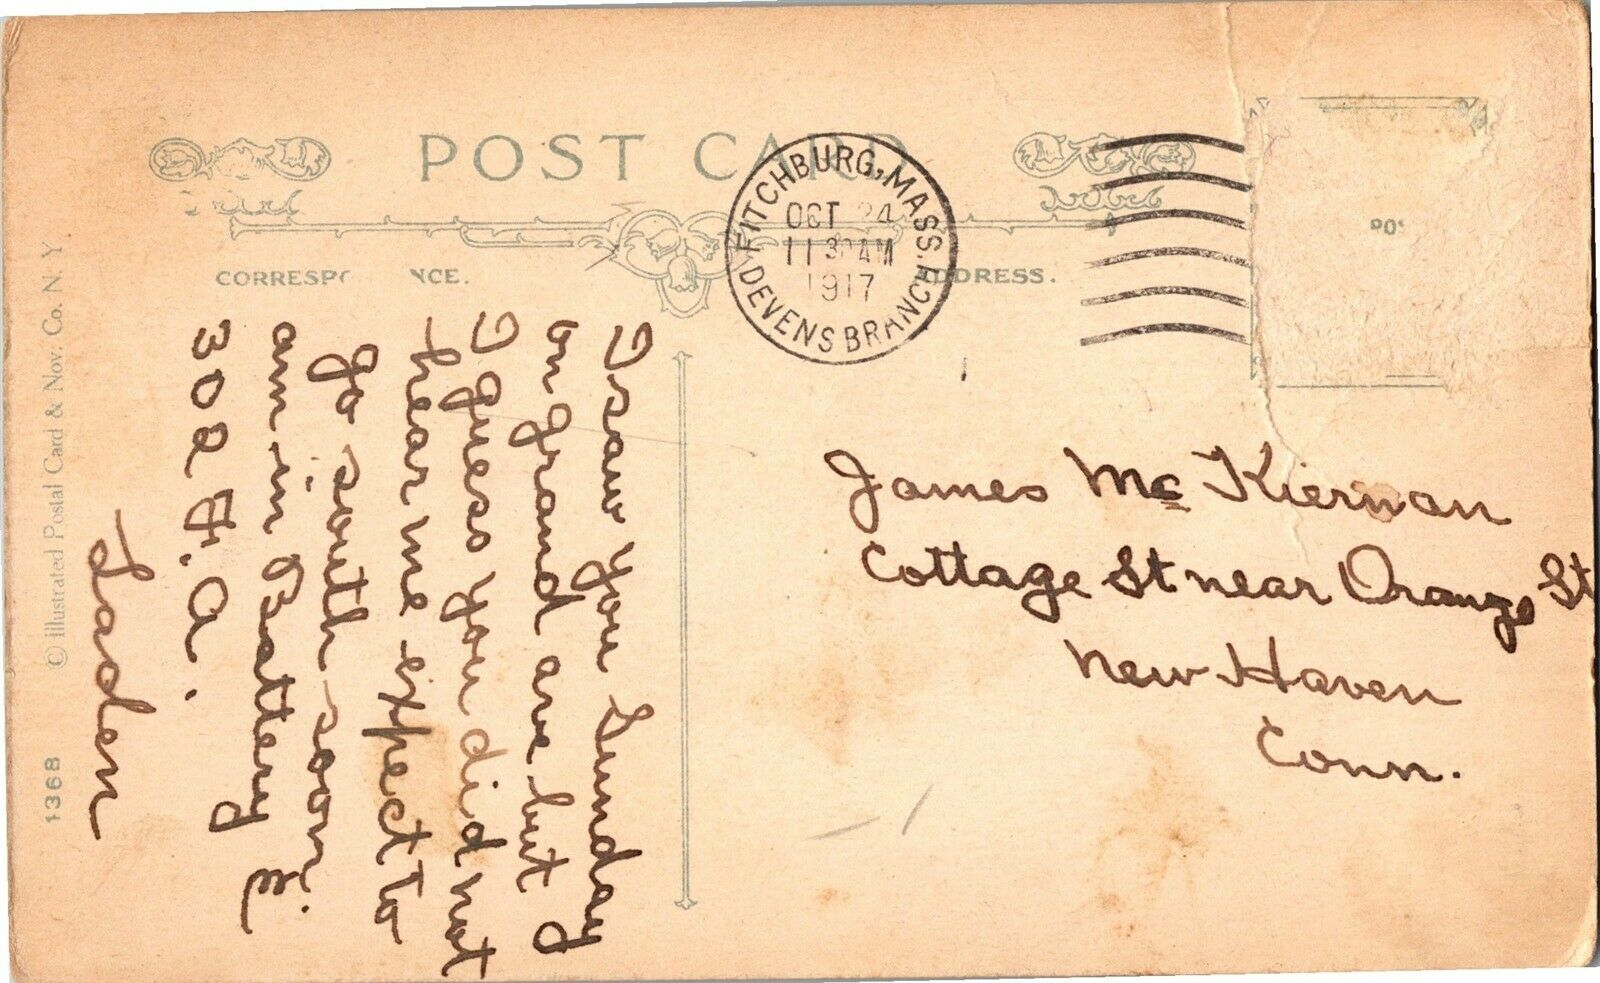 POST CARD
CORRESPONDENCE.
ADDRESS.
FITCHBURG, MASS.
DEVENS BRANCH
OCT 24
11 30 AM
1917
I saw you Sunday
on Grand ave but I
I guess you did not
hear me expect to
go south soon i
am in Battery E
302 F. A.
Laden
James Mc Kiernan
Cottage St near Orange St
New Haven
Conn.
© Illustrated Postal Card & Nov. Co. N. Y.
1368